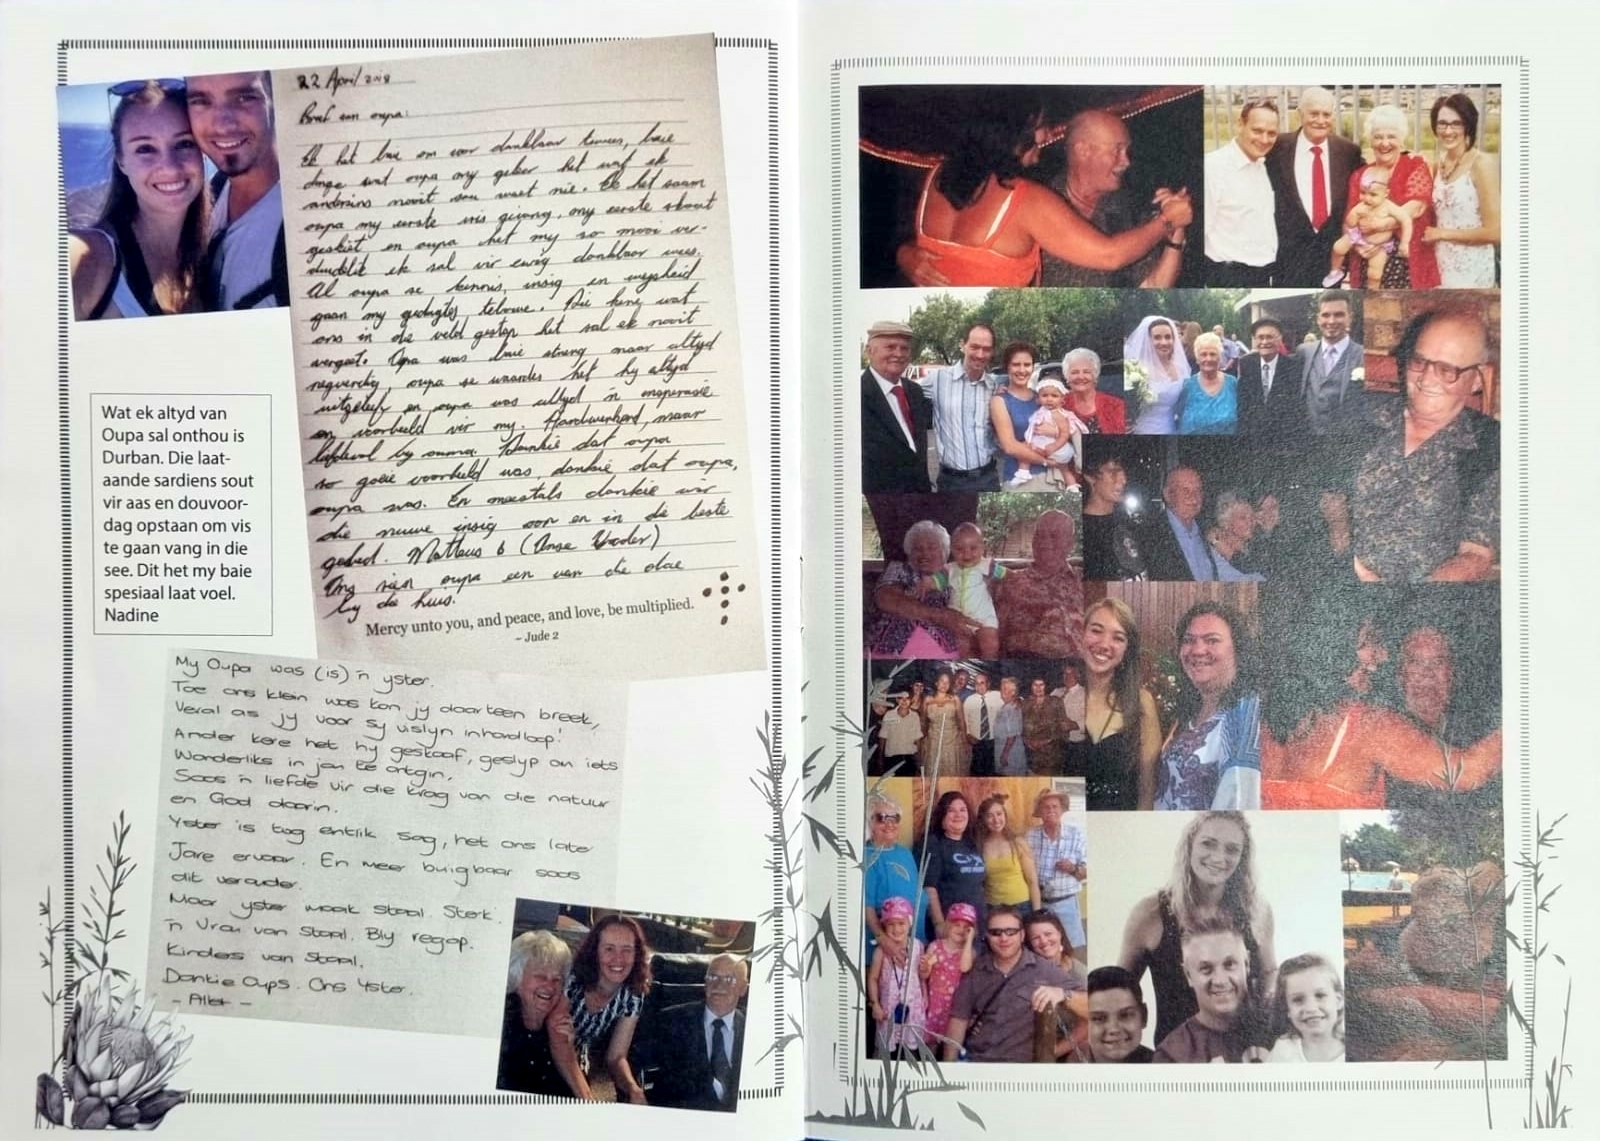 22 April 2018
Brief aan oupa:
Ek het baie om voor dankbaar te wees, baie
dinge wat oupa my geleer het wat ek
andersins nooit sou weet nie. Ek het saam
oupa my eerste vis gevang, my eerste skoot
geskiet en oupa het my so mooi ver-
duidelik ek sal vir ewig dankbaar wees.
Al oupa se kennis, insig en wysheid
gaan my gedagtes, telouue. Die kere wat
ons in die veld gestap het sal ek nooit
vergeet. Oupa was baie streng maar altyd
regverdig, oupa se waardes het hy altyd
uitgeleef en oupa was altyd 'n inspirasie
en voorbeeld vir my. Hardwerkend, maar
liefdevol by ouma. Dankie dat oupa
so goeie voorbeeld was dankie dat oupa,
oupa was. En meestals dankie vir
die nuwe insig oor en in die beste
gebed. Matteus 6 (Onse Vader)
Ons sien oupa een van die dae
by die huis.
Mercy unto you, and peace, and love, be multiplied.
– Jude 2
Wat ek altyd van
Oupa sal onthou is
Durban. Die laat-
aande sardiens sout
vir aas en douvoor-
dag opstaan om vis
te gaan vang in die
see. Dit het my baie
spesiaal laat voel.
Nadine
My Oupa was (is) 'n yster.
Toe ons klein was kon jy daarteen breek,
Veral as jy voor sy vislyn inhardloop!
Ander kere het hy geskaaf, geslyp an iets
Wonderliks in jou te
Soos 'n liefde vir die krag van die natuur
en God daarin.
Yster is tog entlik sag, het ons later
Jare ervaar. En meer buigbaar soos
dit verouder.
Maar yster maak staal. Sterk.
'n Vrou van Staal. Bly regop.
Kinders van Staal.
Dankie Oups. Ons Yster.